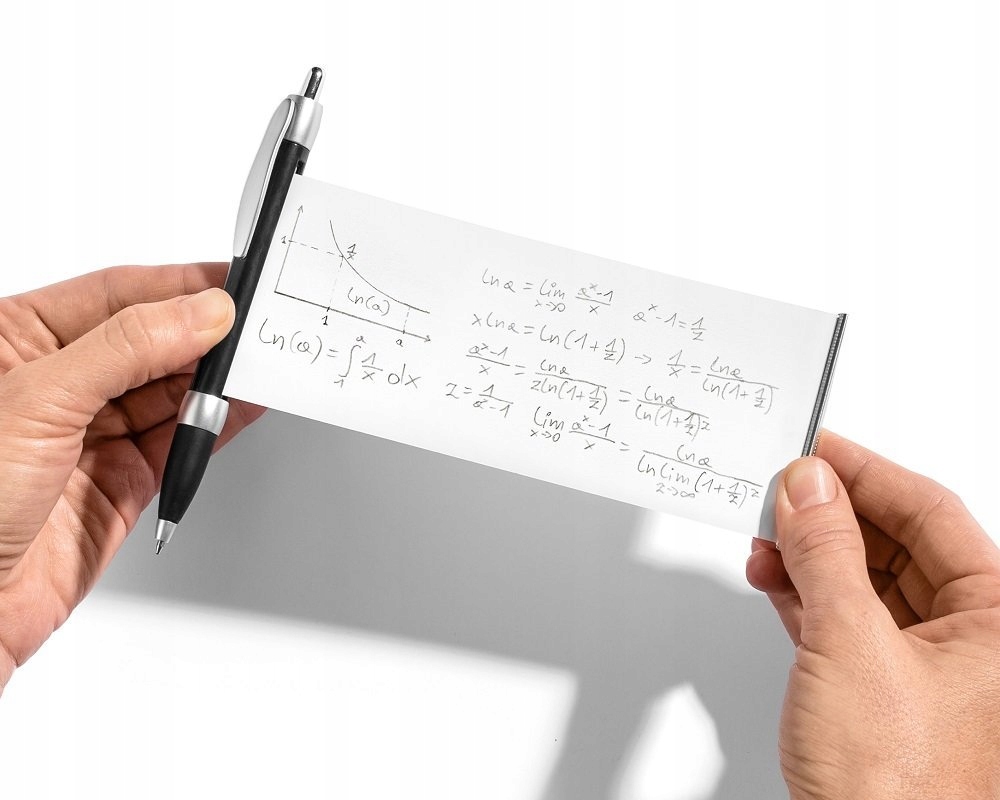 1
1/x
ln(a)
1
a
ln(a) = ∫₁ᵃ 1/x dx
ln a = lim x→0 (aˣ-1)/x    aˣ-1 = 1/z
x ln a = ln(1+1/z) → 1/x = ln a / ln(1+1/z)
(aˣ-1)/x = ln a / (z ln(1+1/z)) = ln a / ln(1+1/z)ᶻ
z = 1/(aˣ-1)
lim x→0 (aˣ-1)/x = ln a / (ln lim z→∞ (1+1/z)ᶻ)